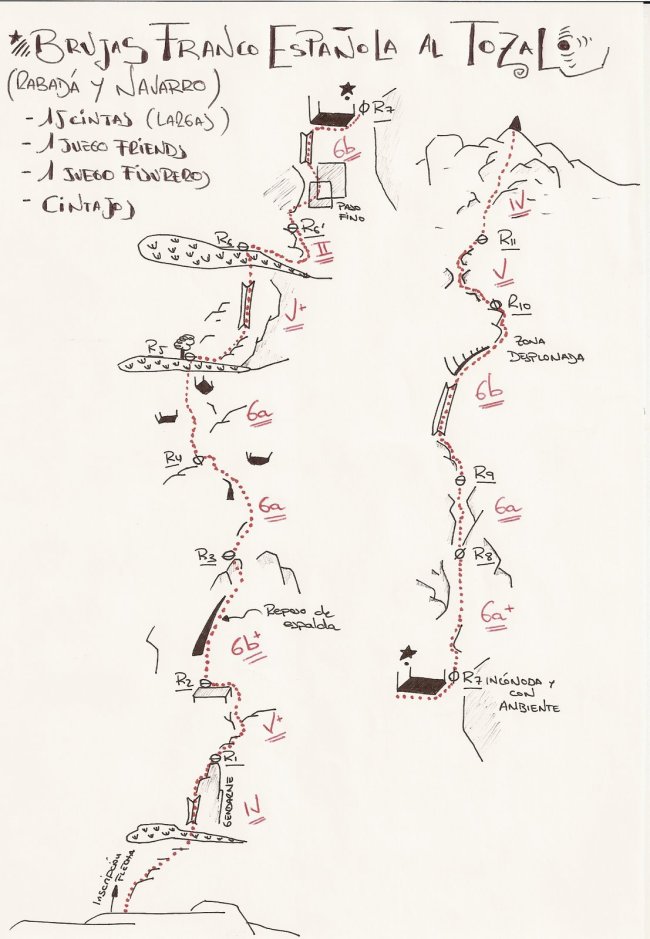 BRUJAS FRANCO ESPAÑOLA AL TOZAL
(RABADÁ Y NAVARRO)
- 15 CINTAS (LARGAS)
- 1 JUEGO FRIENDS
- 1 JUEGO FISUREROS
- CINTAJOS
R7
6b
PASO
FINO
R6'
II
R6
V+
R5
6a
R4
6a
R3
Reposo de
espalda
6b+
R2
V+
R1
GENDARME
IV
INSCRIPCIÓN
FLECHA
IV
R11
V
R10
ZONA
DESPLOMADA
6b
R9
6a
R8
6a+
R7 INCÓMODA Y
CON
AMBIENTE